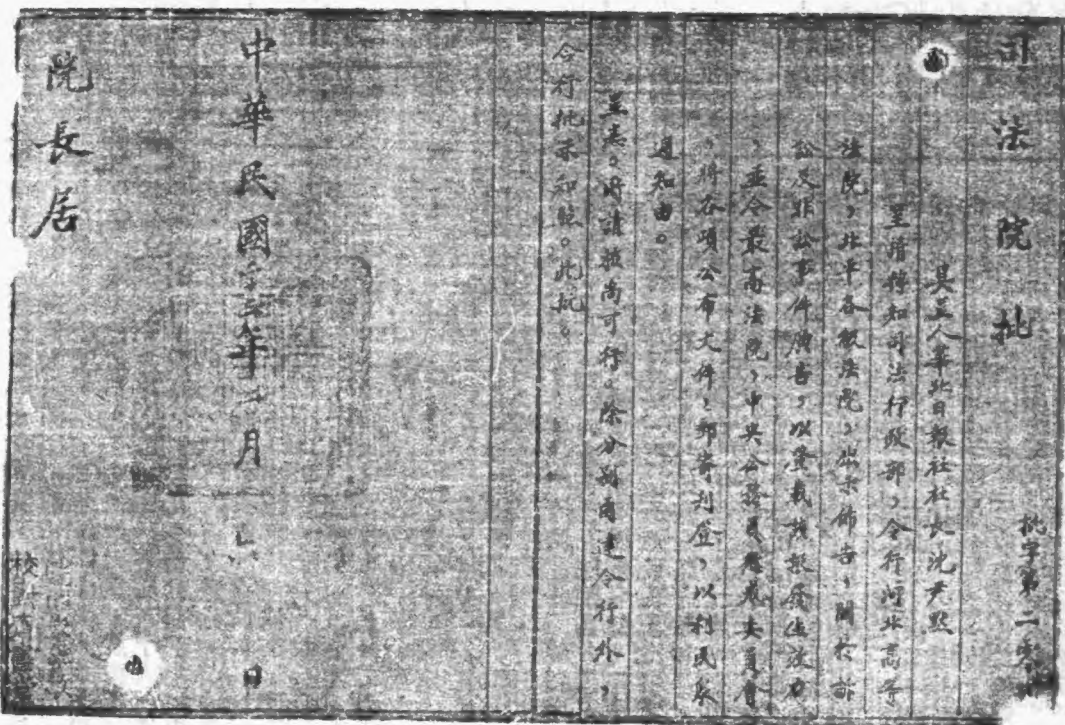 司法院批
批字第二
具呈人華北日報社社長沈尹默
呈請轉知司法行政部，令行河北高等
法院，北平各級法院，出示佈告，關於訴
訟及非訟事件廣告，以登載該報發生效力
，並令最高法院，中央公務員懲戒委員會
，將各項公布文件，郵寄刊登，以利民眾
週知由。
呈悉。所請披尚可行。除分別函達令行外，
合行批示知照。此批。
中華民國 年 月 日
院長居
校